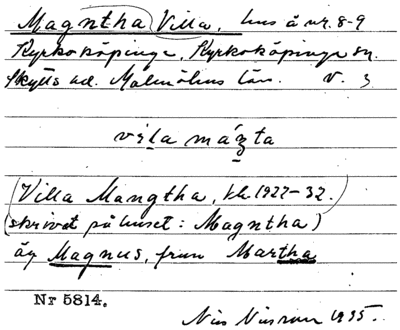 Magntha Villa, hus å nr. 8-9
Kyrkoköpinge, Kyrkoköpinge sn.
Skytts hd. Malmöhus län. V. 3
víla mázta
(Villa Mangtha, kh. 1922-32.
(skrivet på huset: Magntha)
äg Magnus, frun Martha
Nr 5814.
Nils 1935.